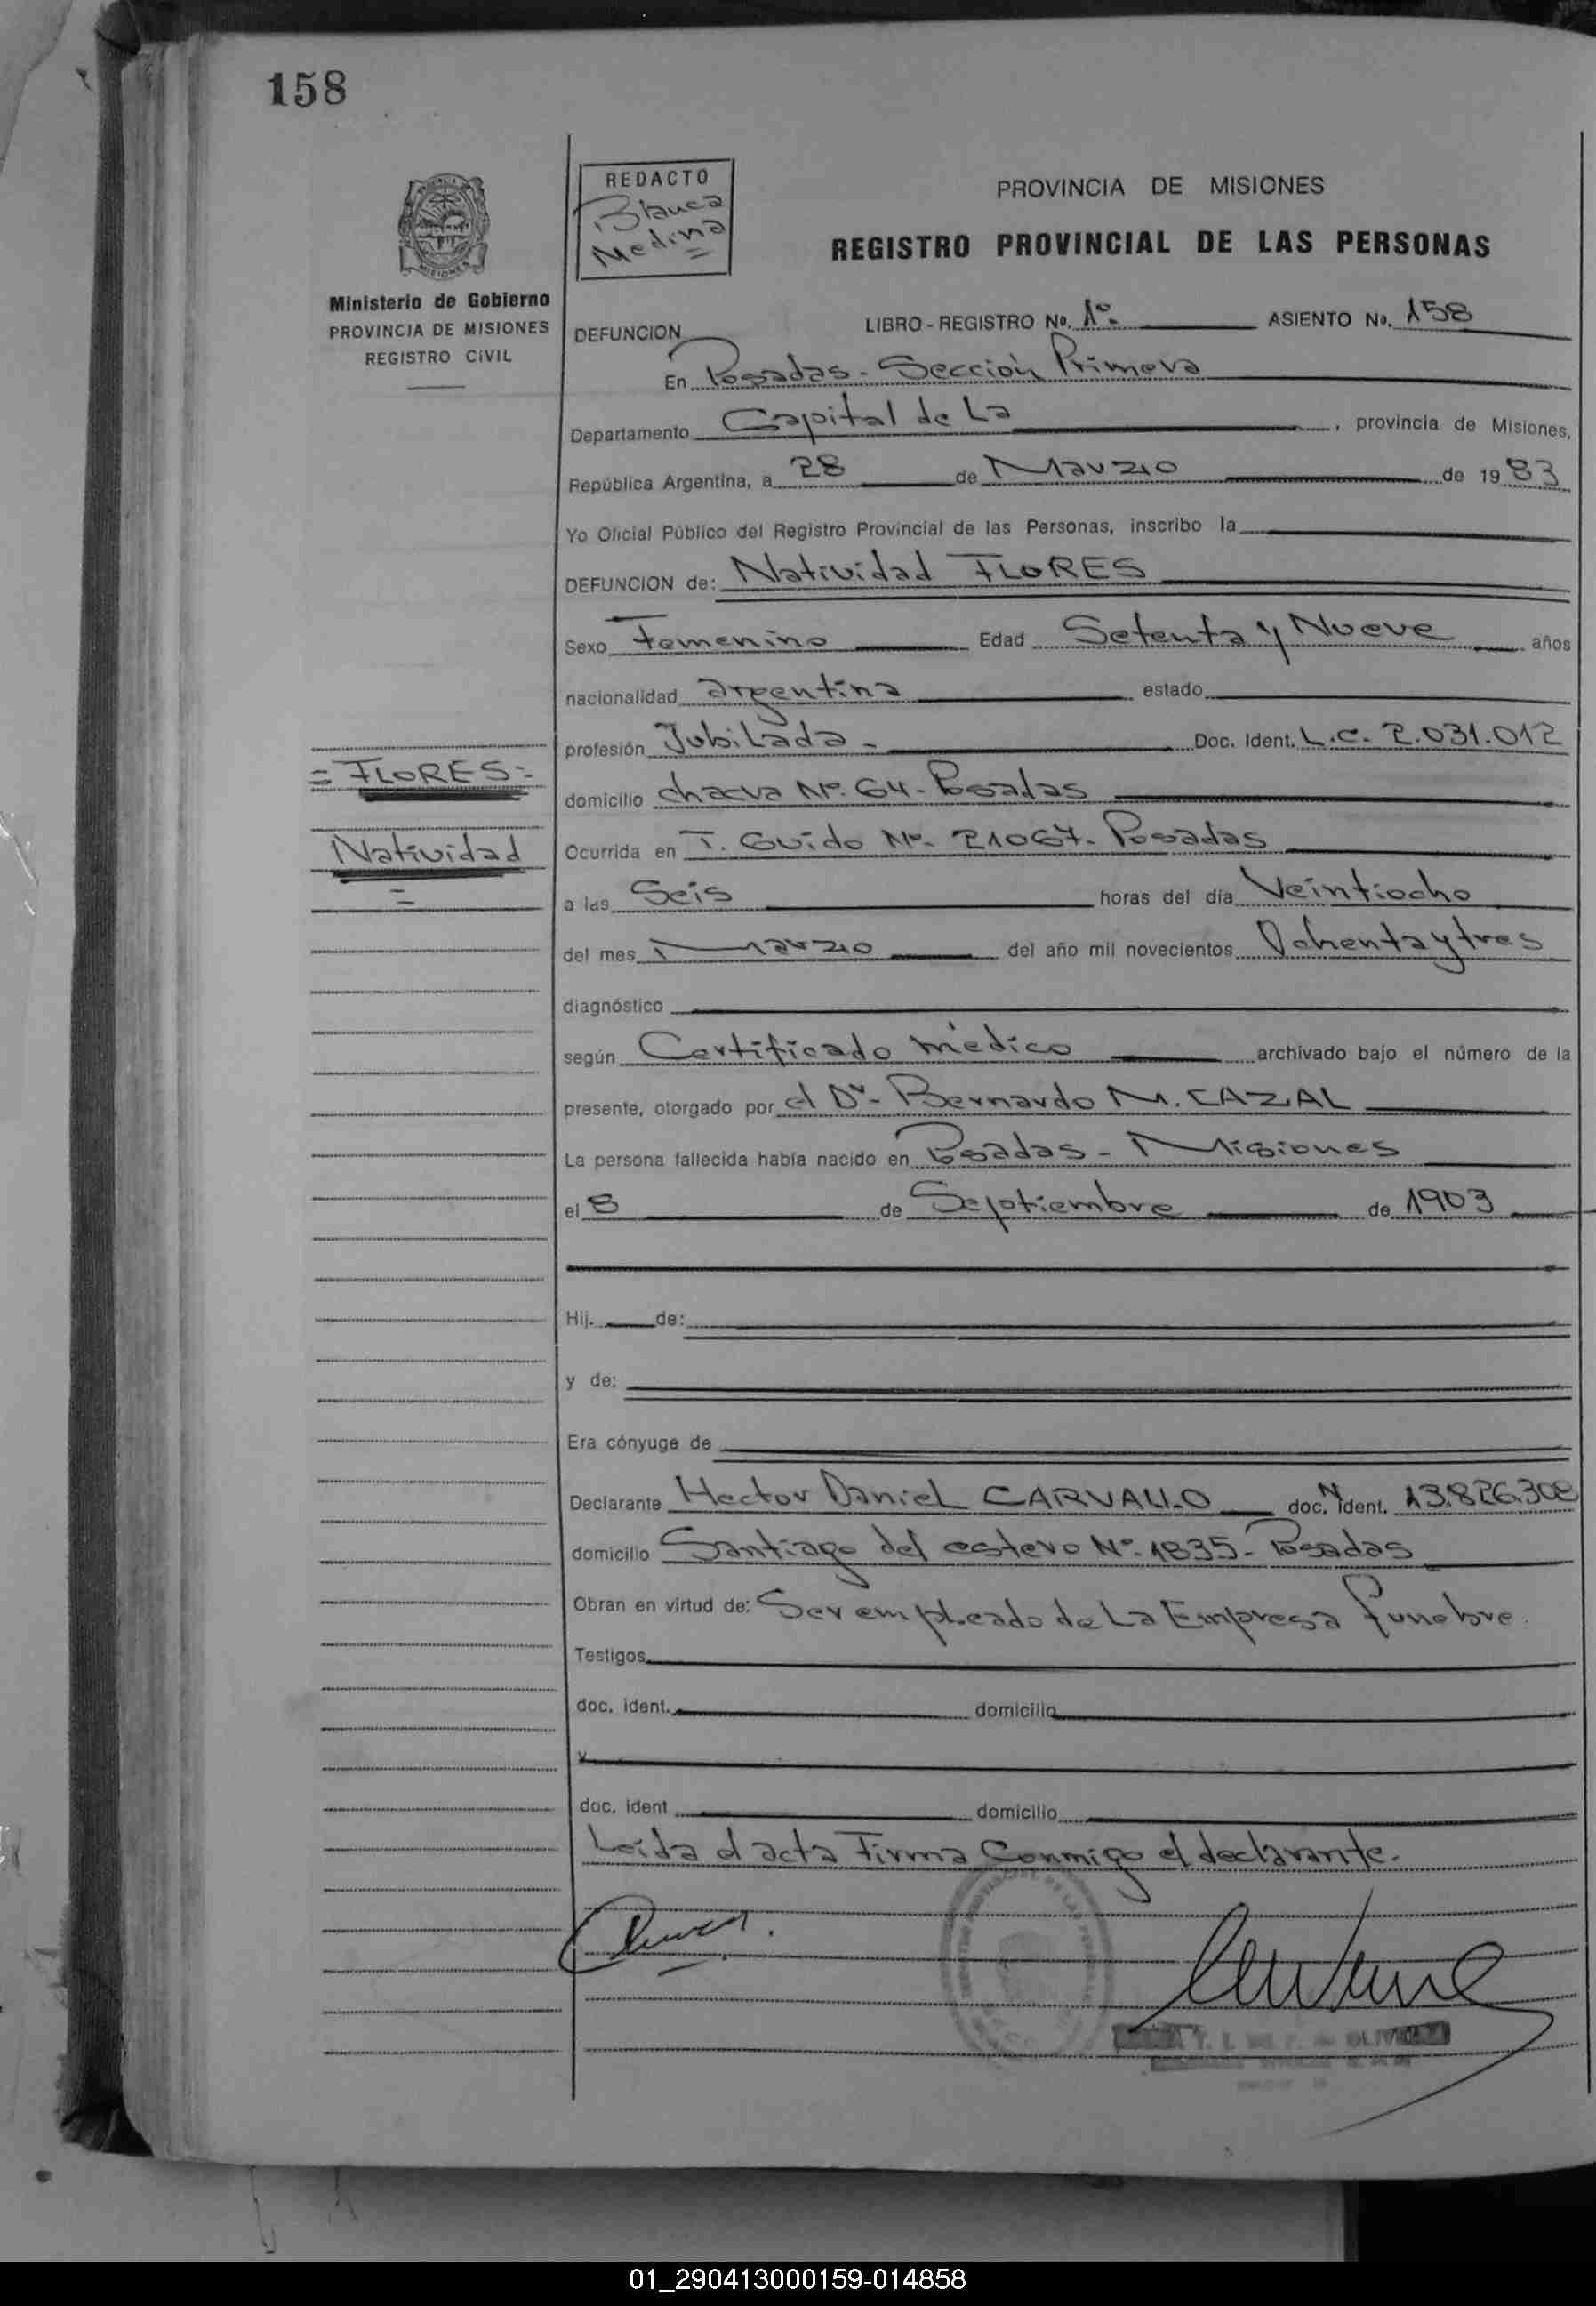 158
REDACTO
Blanca
Medina
PROVINCIA DE MISIONES
REGISTRO PROVINCIAL DE LAS PERSONAS
Ministerio de Gobierno
PROVINCIA DE MISIONES
REGISTRO CIVIL
DEFUNCION
LIBRO-REGISTRO No. 1º. ASIENTO No. 158
En Posadas - Sección Primera
Departamento Capital de La , provincia de Misiones,
República Argentina, a 28 de Marzo de 1983
Yo Oficial Público del Registro Provincial de las Personas, inscribo la
DEFUNCION de: Natividad FLORES
Sexo Femenino Edad Setenta y Nueve años
nacionalidad argentina estado
profesión Jubilada - Doc. Ident. L.C. 2.031.012
= FLORES =
domicilio chacra Nº. 64 - Posadas
Natividad
=
Ocurrida en T. Guido Nº. 21067. Posadas
a las Seis horas del día Veintiocho
del mes Marzo del año mil novecientos Ochenta y tres
diagnóstico
según Certificado médico archivado bajo el número de la
presente, otorgado por el Dr. Bernardo M. CAZAL
La persona fallecida había nacido en Posadas - Misiones
el 8 de Septiembre de 1903
Hij. de:
y de:
Era cónyuge de
Declarante Hector Daniel CARVALLO doc. N ident. 13.826.308
domicilio Santiago del estero Nº. 1835 - Posadas
Obran en virtud de: Ser empleado de La Empresa funebre.
Testigos
doc. ident. domicilio
y
doc. ident domicilio
Leída el acta Firma Conmigo el declarante.
01_290413000159-014858